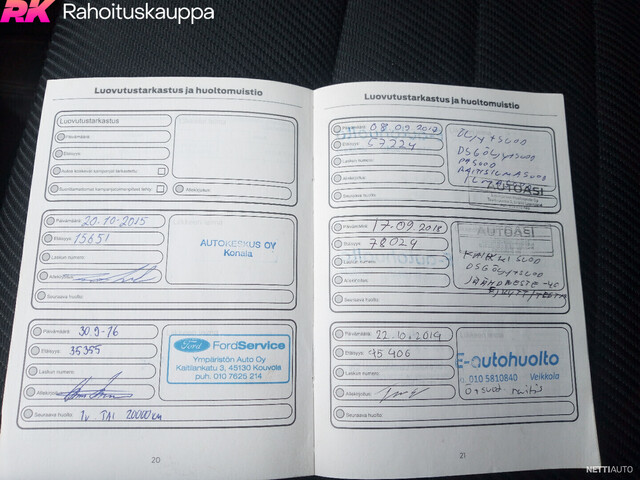 RK Rahoituskauppa
Luovutustarkastus ja huoltomuistio
Luovutustarkastus
Päivämäärä:
Etäisyys:
Allekirjoitus:
Päivämäärä: 20.10-2015
Etäisyys: 15651
Laskun numero:
Allekirjoitus:
Seuraava huolto:
AUTOKESKUS OY
Konala
Päivämäärä: 30.9-16
Etäisyys: 35355
Laskun numero:
Allekirjoitus:
Seuraava huolto: 1v TAI 20000km
Ford FordService
Ympäristön Auto Oy
Kaitilankatu 3, 45130 Kouvola
puh. 010 7625 214
20
Luovutustarkastus ja huoltomuistio
Päivämäärä: 08.09.2017
Etäisyys: 57224
Laskun numero:
Allekirjoitus:
Seuraava huolto:
AUTOASI
Päivämäärä: 17.09.2018
Etäisyys: 78024
Laskun numero:
Allekirjoitus:
Seuraava huolto:
AUTOASI
Päivämäärä: 22.10.2019
Etäisyys: 95406
Laskun numero:
Allekirjoitus:
Seuraava huolto:
E-autohuolto
010 5810840 Veikkola
21
NETTIAUTO